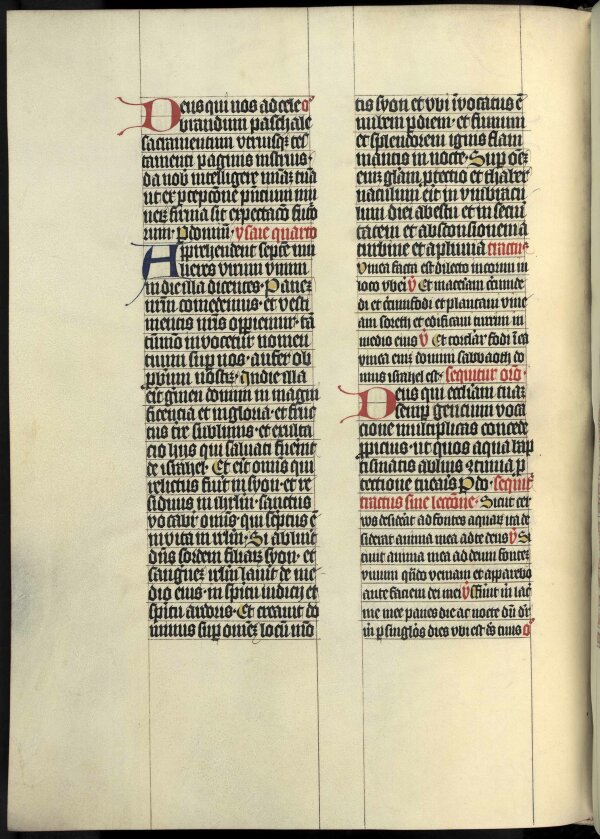 Deus qui nos ad cele or̃
brandum paschale
sacramentum vtriusqꝫ tes
tamenti paginis instruis·
da nob̃ intelligere miaꝫ tuã
ut ex ꝑceptõne p̃ntium mu
neꝝ firma sit expectacõ futu
roꝝ· P dominũ· ysaie quarto
Apprehendent septẽ mu
lieres virum vnum
in die illa dicentes· Paneꝫ
nr̃m comedemus· et vesti
mentis nr̃is opꝑiemur· tã
tũmo inuocetur nomen
tuum sup nos· aufer ob
ꝓbrium nostrũ· In die illa
erit germen domini in magni
ficencia et in gloria· et fruc
tus tr̃e sublimis· et exulta
cio hijs qui saluati fuerint
de israhel· Et erit omis qui
relictus fuit in syon· et re
siduus in ihrl̃m· sanctus
vocabit̃ omis qui sc̃ptus ẽ
in vita in irl̃m· Si abluit
dñs sordem filiaꝝ syon· et
sanguineꝫ irl̃m lauit de me
dio eius· in spiritu iudicij et
spiritu ardoris· Et creauit do
minus suꝑ omneꝫ locũ mõ
tis syon et vbi ĩuocatus ẽ
nubem ꝑ diem· et fumum
et splendorem ignis flam
mantis in nocte· Suꝑ oẽꝫ
eni gl̃am ꝓtectio· et thaber
naculum erit in vmbracu
lum diei ab estu· et in secu
ritatem et absconsionem a
turbine et a pluuia tractus
Vinea facta est dilecto in cornu in
loco vberi V̉ Et maceriam circũde
dit et circũfodit et plantauit vine
am soreth et edificauit turrim in
medio eius V̉ Et torclar fodit ĩ ea
vinea em̃ domini sabaoth do
mus israhel est· sequitur orõ·
Deus qui ecclesiam tuaꝫ
semꝑ gencium voca
cione multiplicas concede
ꝓpicius· ut quos aqua bap
tismatis abluis cõtinua ꝓ
tectione tuearis P do· sequit̃
tractus sine lectõne· Sicut cer
uus desiderat ad fontes aquaꝝ ita de
siderat anima mea ad te deus V̉ Si
tiuit anima mea ad deum fonteꝫ
viuum qñdo veniam et apparebo
ante faciem dei mei V̉ ffuerũt m̃ lac
me mee panes die ac nocte dũ dr̃
m̃ ꝑ singlo̊s dies vbi est de's tuus or̃